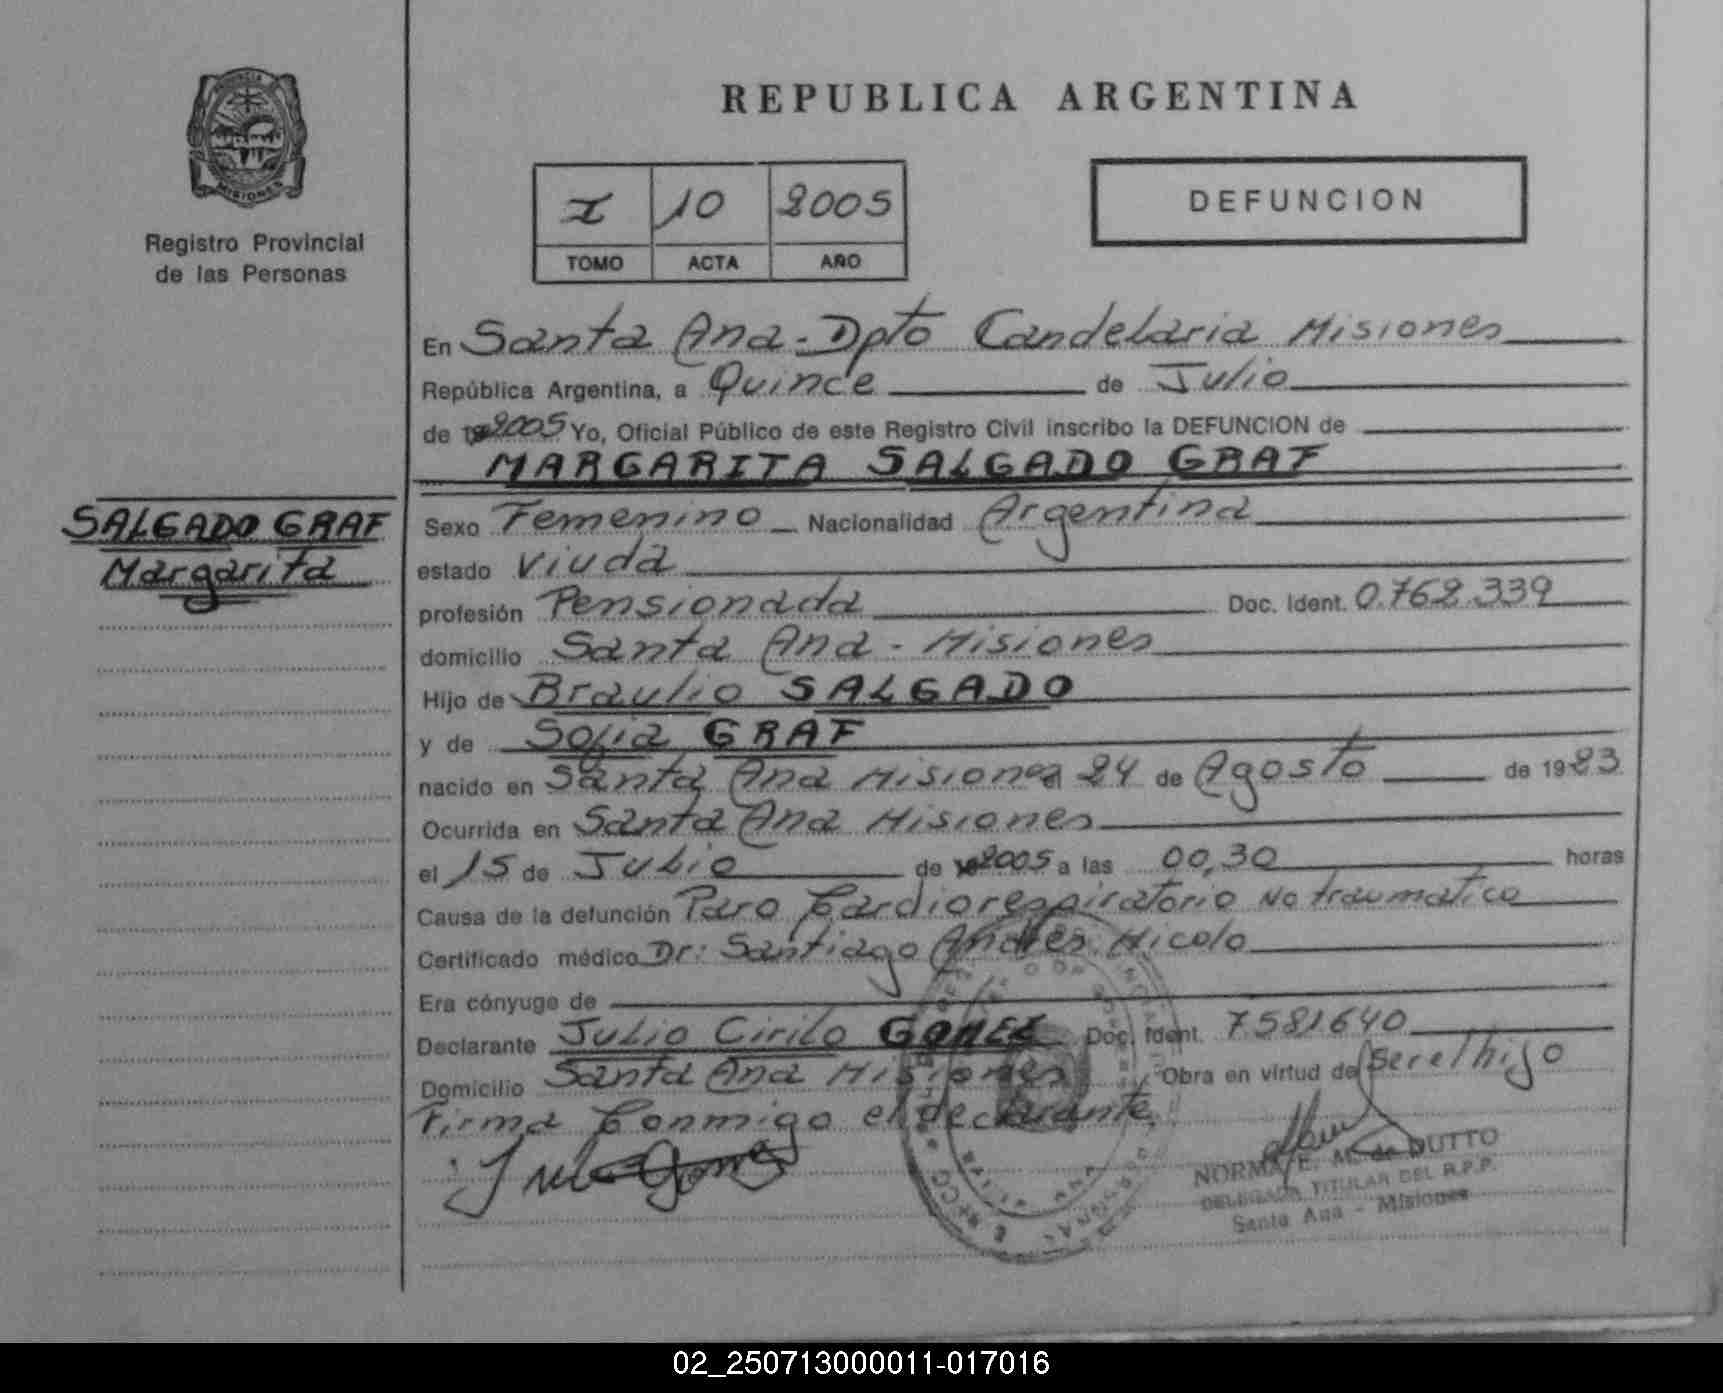 PROVINCIA
MISIONES
Registro Provincial
de las Personas
REPUBLICA ARGENTINA
I 10 2005
TOMO ACTA AÑO
DEFUNCION
En Santa Ana - Dpto Candelaria Misiones
República Argentina, a Quince de Julio
de 2005 Yo, Oficial Público de este Registro Civil inscribo la DEFUNCION de
MARGARITA SALGADO GRAF
SALGADO GRAF
Margarita
Sexo Femenino Nacionalidad Argentina
estado viuda
profesión Pensionada Doc. Ident. 0.762.339
domicilio Santa Ana - Misiones
Hijo de Braulio SALGADO
y de Sofia GRAF
nacido en Santa Ana Misiones el 24 de Agosto de 1923
Ocurrida en Santa Ana Misiones
el 15 de Julio de 2005 a las 00,30 horas
Causa de la defunción Paro Cardiorespiratorio No traumatico
Certificado médico Dr: Santiago Andres Nicolo
Era cónyuge de
Declarante Julio Cirilo GOMEZ Doc. Ident. 7581640
Domicilio Santa Ana Misiones Obra en virtud de Ser el hijo
Firma Conmigo el declarante
NORMA E. M. de DUTTO
DELEGADA TITULAR DEL R.P.P.
Santa Ana - Misiones
02_250713000011-017016